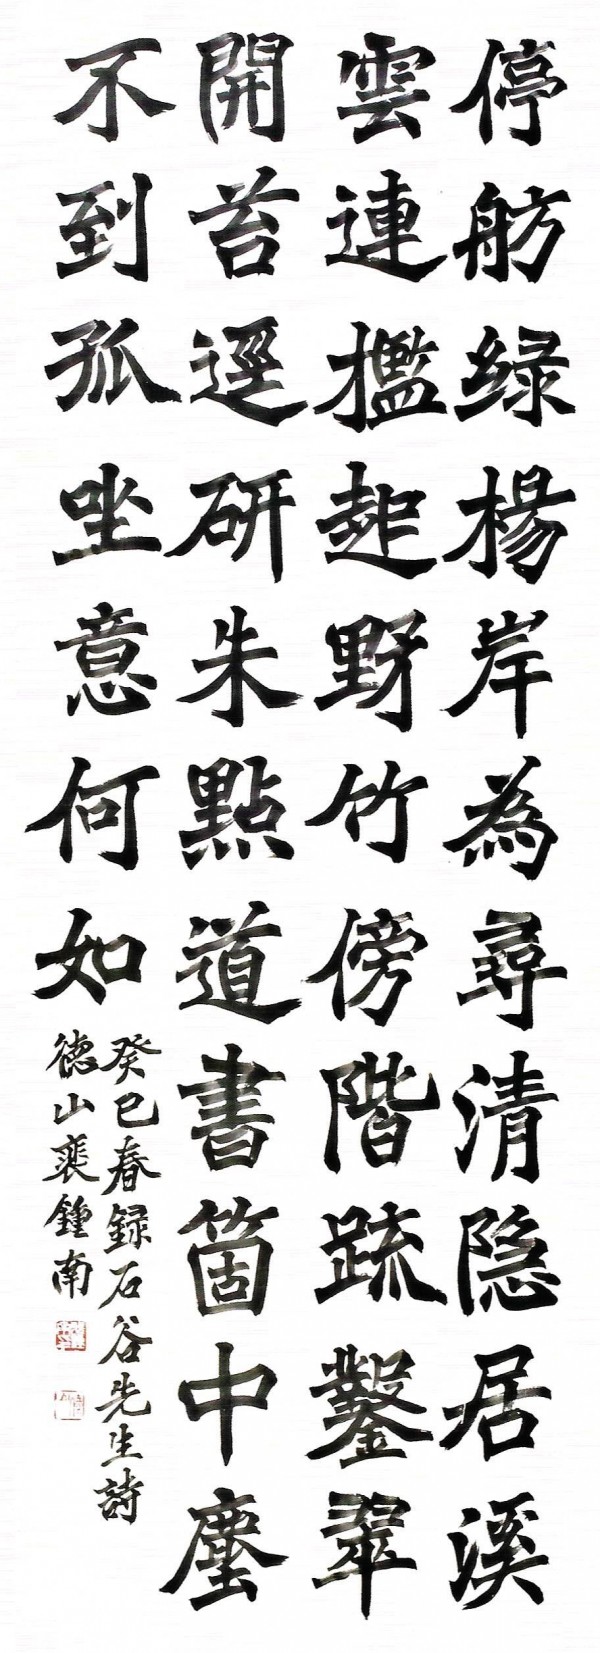 停舫緑楊岸為尋清隐居溪
雲連檻起野竹傍階疏鑿翠
開苔逕研朱點道書箇中塵
不到孤坐意何如
癸巳春録石谷先生詩
德山裵鍾南